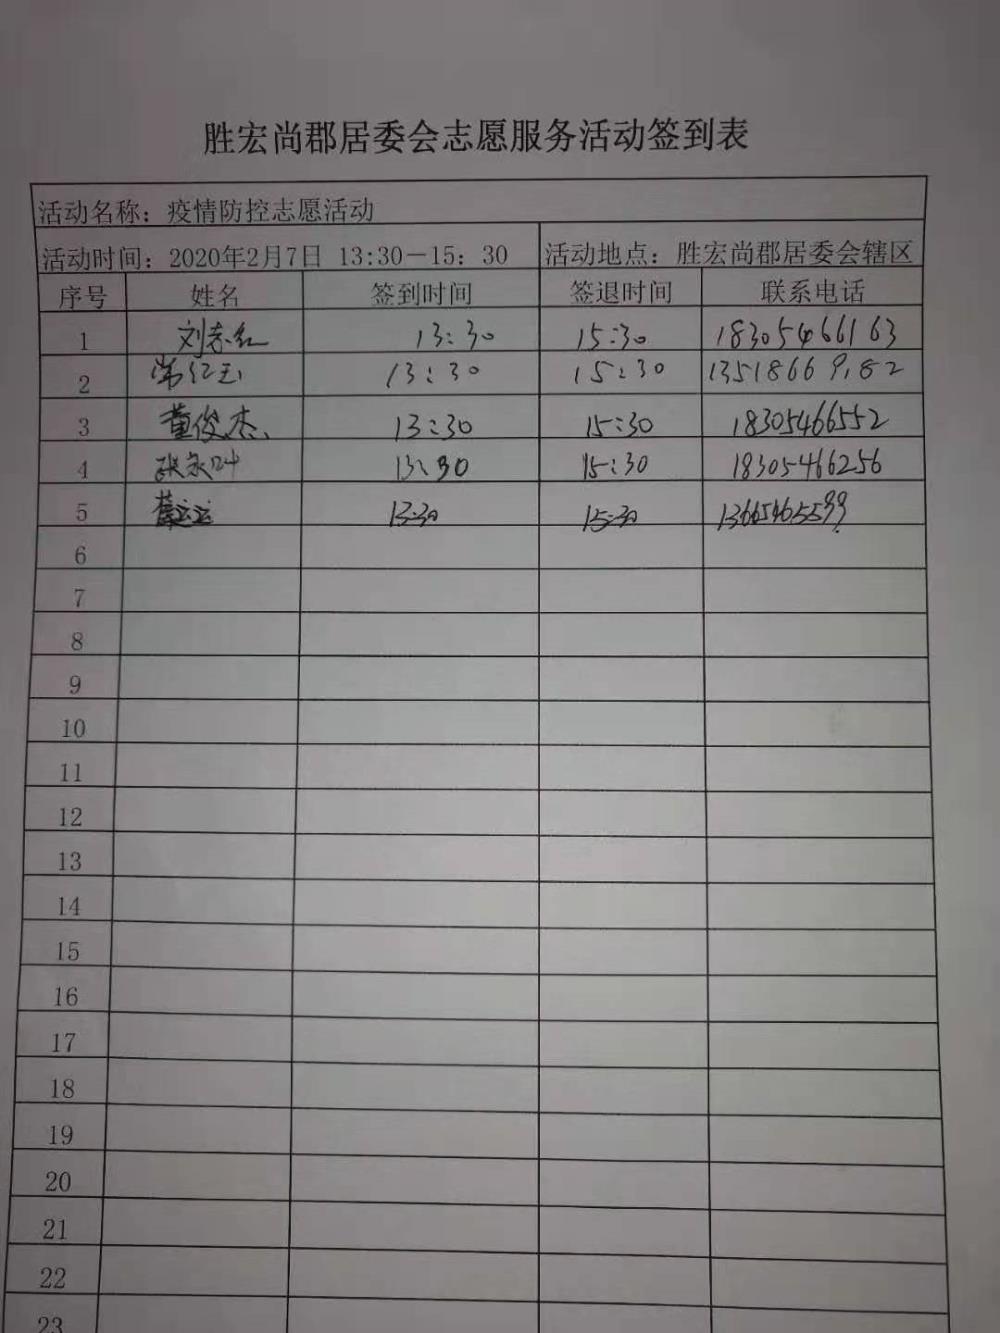 胜宏尚郡居委会志愿服务活动签到表
活动名称：疫情防控志愿活动
活动时间：2020年2月7日 13:30－15：30 活动地点：胜宏尚郡居委会辖区
序号 姓名 签到时间 签退时间 联系电话
1 刘志红 13:30 15:30 18305466163
2 常红玉 13:30 15:30 13518669182
3 董俊杰 13:30 15:30 18305466552
4 张永叶 13:30 15:30 18305466256
5 运运 13:30 15:30 13665465599
6
7
8
9
10
11
12
13
14
15
16
17
18
19
20
21
22
23